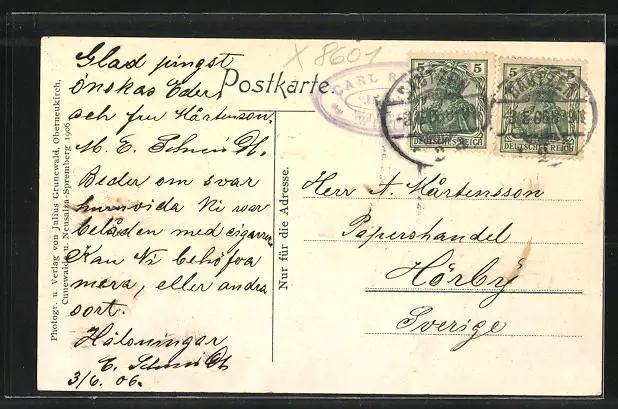 Glad pingst
önskas Eder
och fru Mårtenson.
M. E. Schmidt.
Beder om svar
huruvida Ni var
belåden med cigarrerna
Kan Ni behöfva
mera, eller andra
sort.
Hälsningar
E. Schmidt
3/6. 06.
Photogr. u. Verlag von Julius Grunewald, Oberneukirch,
Cunewalde u. Neusalza-Spremberg 1906
X 8601
Postkarte.
CARL
5 5
DEUTSCHES REICH
5 5
DEUTSCHES REICH
Nur für die Adresse.
Herr A. Mårtensson
Papershandel
Hörby
Sverige